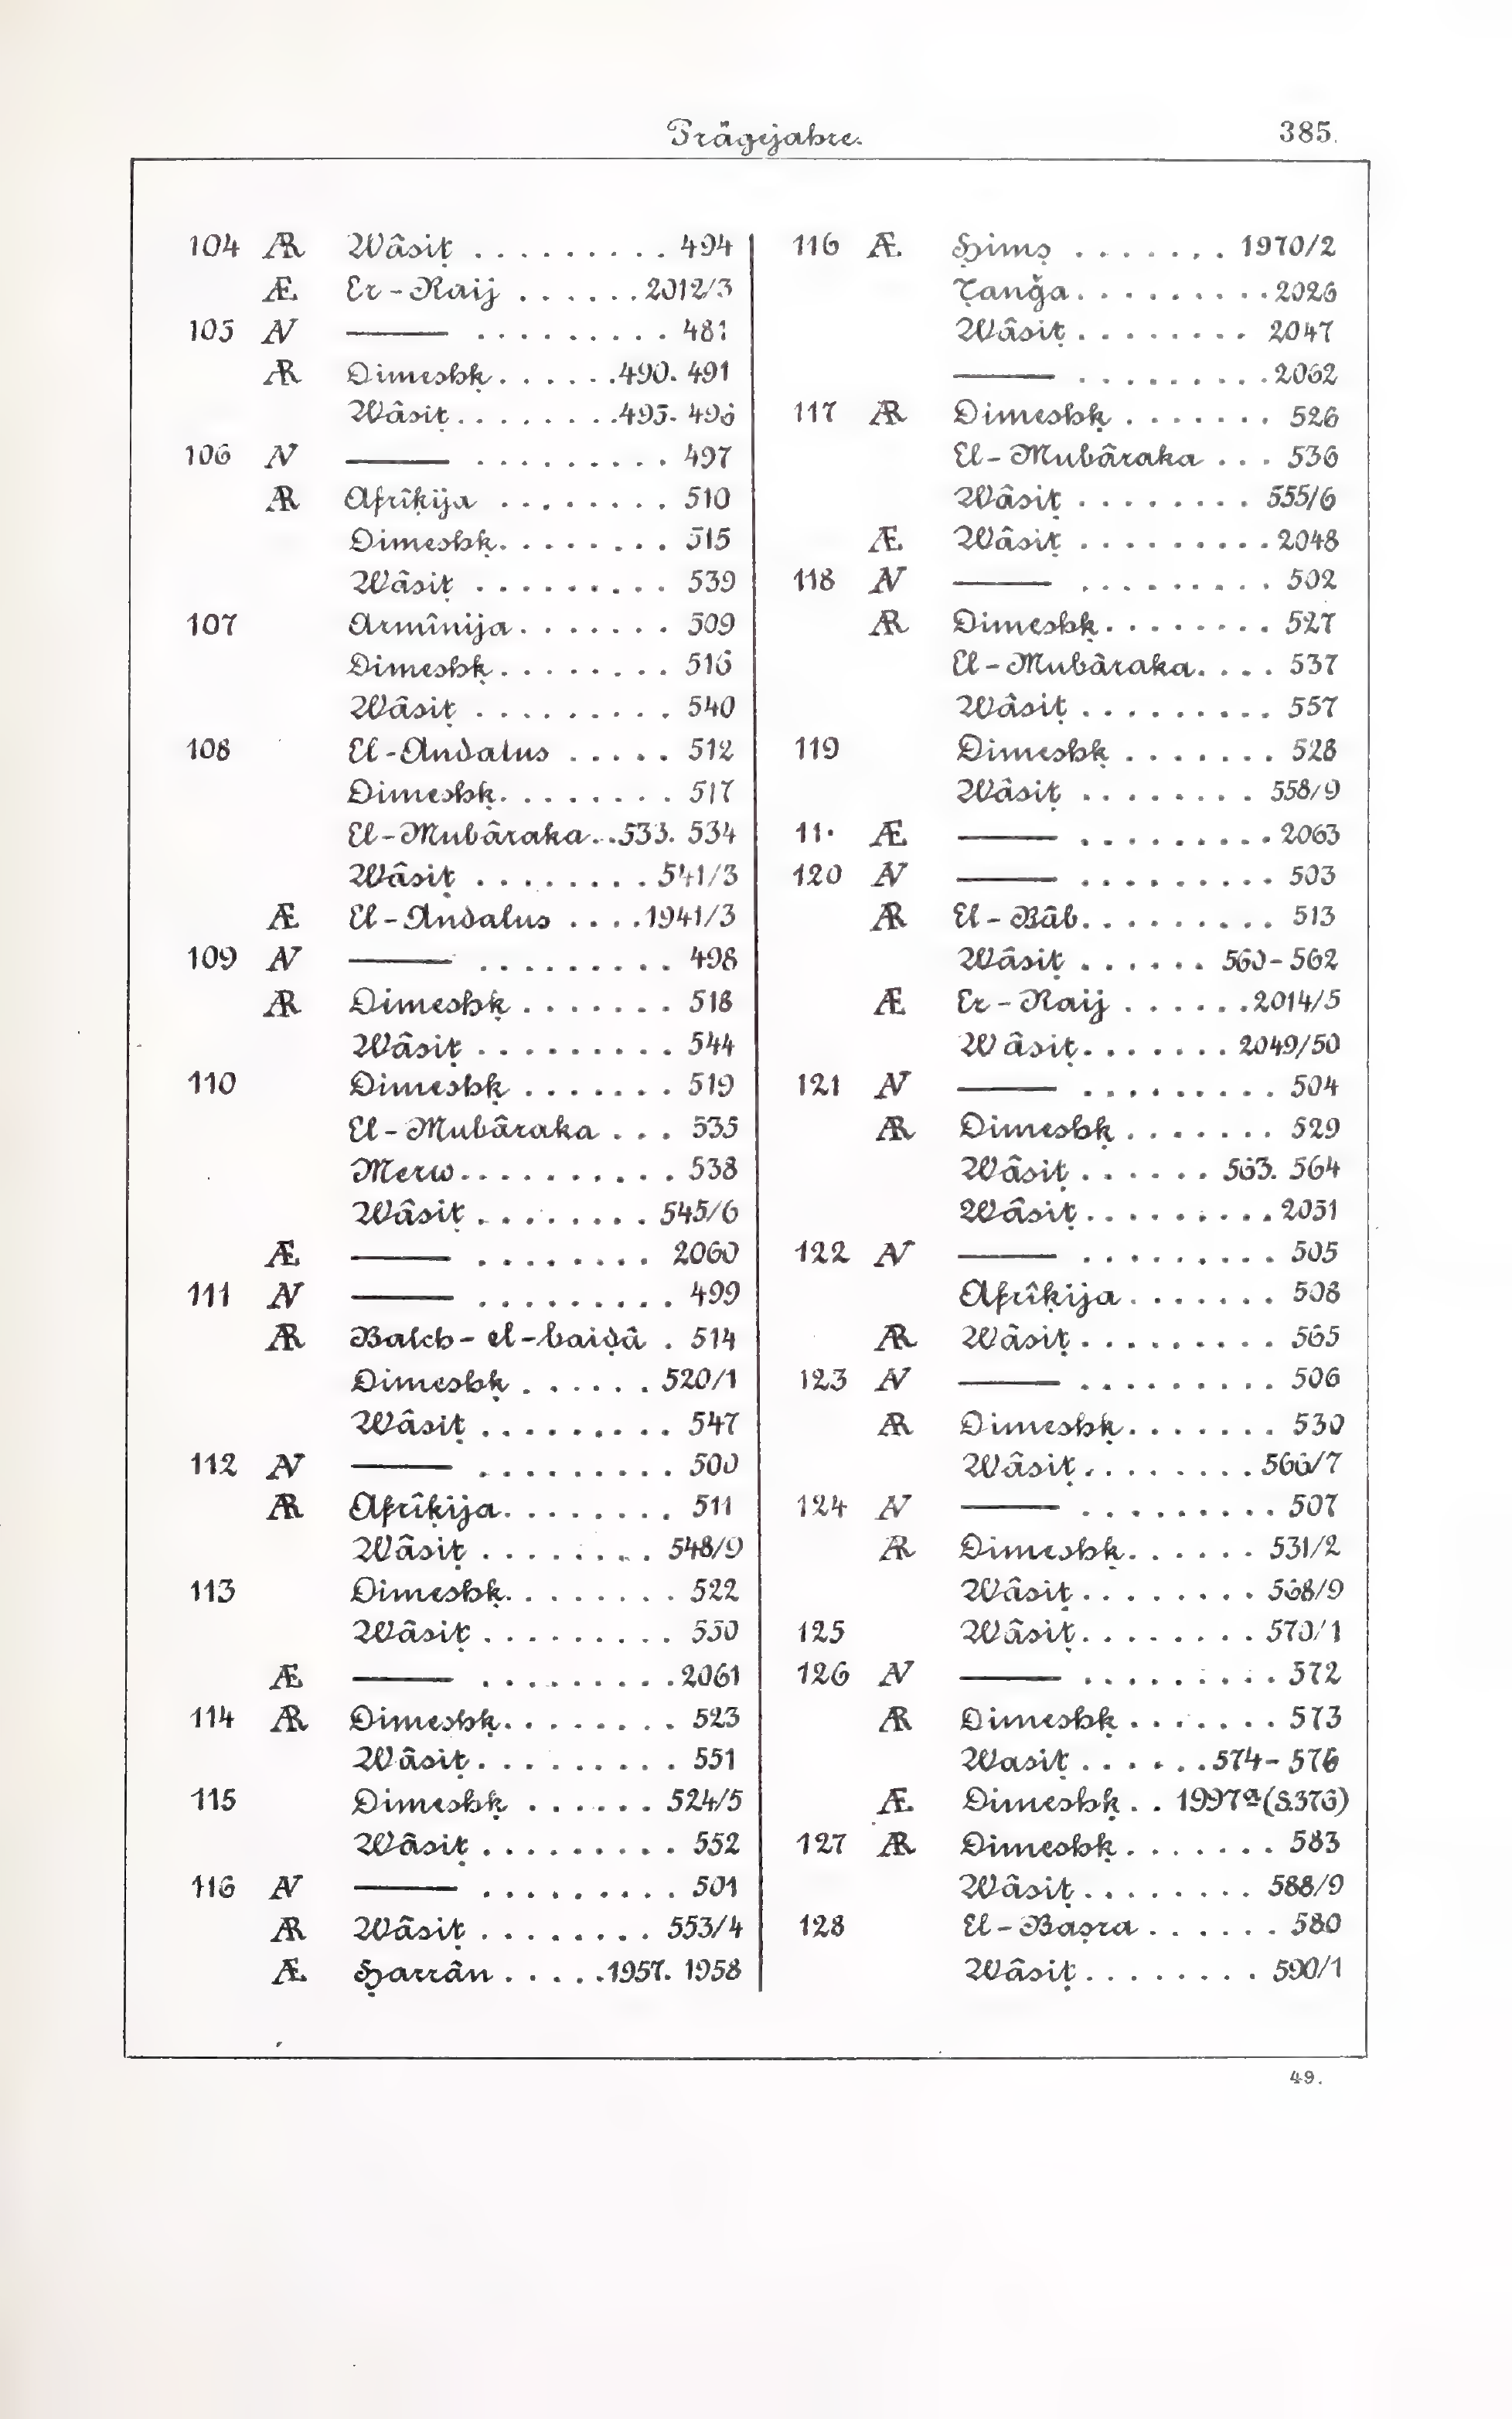 Prägejahre.
385.
104 Æ Wâsiṭ . . . . . . . . . . 494
Æ Er-Raij . . . . . . 2012/3
105 N ——— . . . . . . . . . . 481
Æ Dimeshḳ . . . . . . 490. 491
Wâsiṭ . . . . . . . . 495. 496
106 N ——— . . . . . . . . . . 497
Æ Afrîḳija . . . . . . . . 510
Dimeshḳ . . . . . . . . 515
Wâsiṭ . . . . . . . . . 539
107 Armînija . . . . . . . 509
Dimeshḳ . . . . . . . . 516
Wâsiṭ . . . . . . . . . 540
108 El-Andalus . . . . . 512
Dimeshḳ . . . . . . . . 517
El-Mubâraka . . 533. 534
Wâsiṭ . . . . . . . . 541/3
Æ El-Andalus . . . . 1941/3
109 N ——— . . . . . . . . . 498
AR Dimeshḳ . . . . . . . 518
Wâsiṭ . . . . . . . . . 544
110 Dimeshḳ . . . . . . . 519
El-Mubâraka . . . 535
Merw . . . . . . . . . . 538
Wâsiṭ . . . . . . . . 545/6
Æ ——— . . . . . . . . 2060
111 N ——— . . . . . . . . . 499
AR Balch-el-baiḍâ . 514
Dimeshḳ . . . . . . 520/1
Wâsiṭ . . . . . . . . . 547
112 N ——— . . . . . . . . . 500
AR Afrîḳija . . . . . . . . 511
Wâsiṭ . . . . . . . . 548/9
113 Dimeshḳ . . . . . . . . 522
Wâsiṭ . . . . . . . . . 550
Æ ——— . . . . . . . . . 2061
114 AR Dimeshḳ . . . . . . . . 523
Wâsiṭ . . . . . . . . . 551
115 Dimeshḳ . . . . . . 524/5
Wâsiṭ . . . . . . . . . 552
116 N ——— . . . . . . . . . 501
AR Wâsiṭ . . . . . . . . 553/4
Æ Ḥarrân . . . . . 1957. 1958
116 Æ Ḥimṣ . . . . . . . 1970/2
Ṭanǧa . . . . . . . . . 2026
Wâsiṭ . . . . . . . . 2047
——— . . . . . . . . . 2062
117 AR Dimeshḳ . . . . . . . 526
El-Mubâraka . . . 536
Wâsiṭ . . . . . . . . 555/6
Æ Wâsiṭ . . . . . . . . . 2048
118 N ——— . . . . . . . . . 502
AR Dimeshḳ . . . . . . . . 527
El-Mubâraka . . . . 537
Wâsiṭ . . . . . . . . . 557
119 Dimeshḳ . . . . . . . 528
Wâsiṭ . . . . . . . . 558/9
11· Æ ——— . . . . . . . . . 2063
120 N ——— . . . . . . . . . 503
AR El-Bâb . . . . . . . . . 513
Wâsiṭ . . . . . . 560-562
Æ Er-Raij . . . . . . 2014/5
Wâsiṭ . . . . . . . 2049/50
121 N ——— . . . . . . . . . 504
AR Dimeshḳ . . . . . . . 529
Wâsiṭ . . . . . . 563. 564
Wâsiṭ . . . . . . . . . 2051
122 N ——— . . . . . . . . . 505
Afrîḳija . . . . . . . 508
AR Wâsiṭ . . . . . . . . . 565
123 N ——— . . . . . . . . . 506
AR Dimeshḳ . . . . . . . 530
Wâsiṭ . . . . . . . . 566/7
124 N ——— . . . . . . . . . 507
AR Dimeshḳ . . . . . . 531/2
Wâsiṭ . . . . . . . . 568/9
125 Wâsiṭ . . . . . . . . 570/1
126 N ——— . . . . . . . . . 572
AR Dimeshḳ . . . . . . . 573
Wasiṭ . . . . . . 574-576
Æ Dimeshḳ . . 1997ª (S.376)
127 AR Dimeshḳ . . . . . . . 583
Wâsiṭ . . . . . . . . 588/9
128 El-Baṣra . . . . . . 580
Wâsiṭ . . . . . . . . 590/1
49.